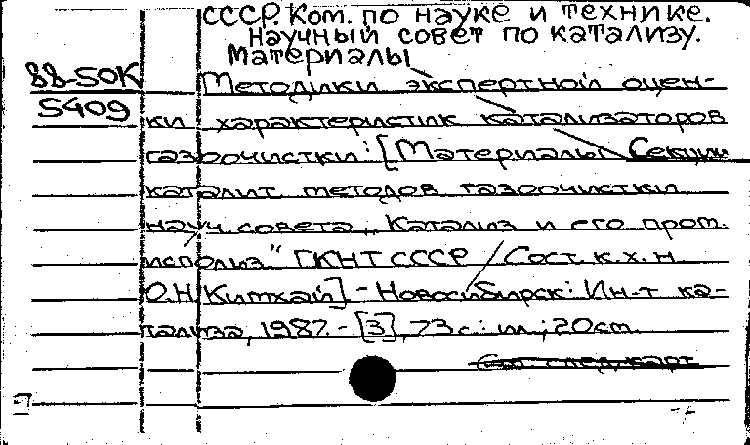 СССР. Ком. по науке и технике.
Научный совет по катализу.
Материалы
88-50К
Методики экспертной оцен-
5409
ки характеристик катализаторов
газоочистки: [Материалы Секции
каталит методов газоочистки
науч совета „Катализ и его пром.
использ" ГКНТ СССР / Сост. к.х.н
О.Н Китхай] - Новосибирск: Ин-т ка-
тализа, 1987. - [3], 73 с.: ил.; 20 cm.
См след. карт